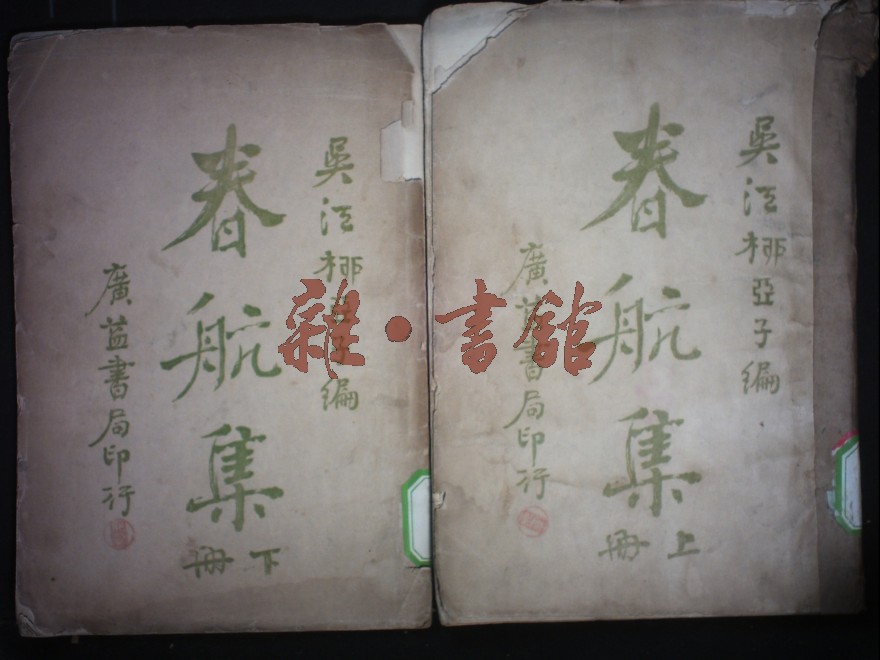 吳江柳亞子編
春航集
上冊
廣益書局印行
吳江柳亞子編
春航集
下冊
廣益書局印行
雜·書館